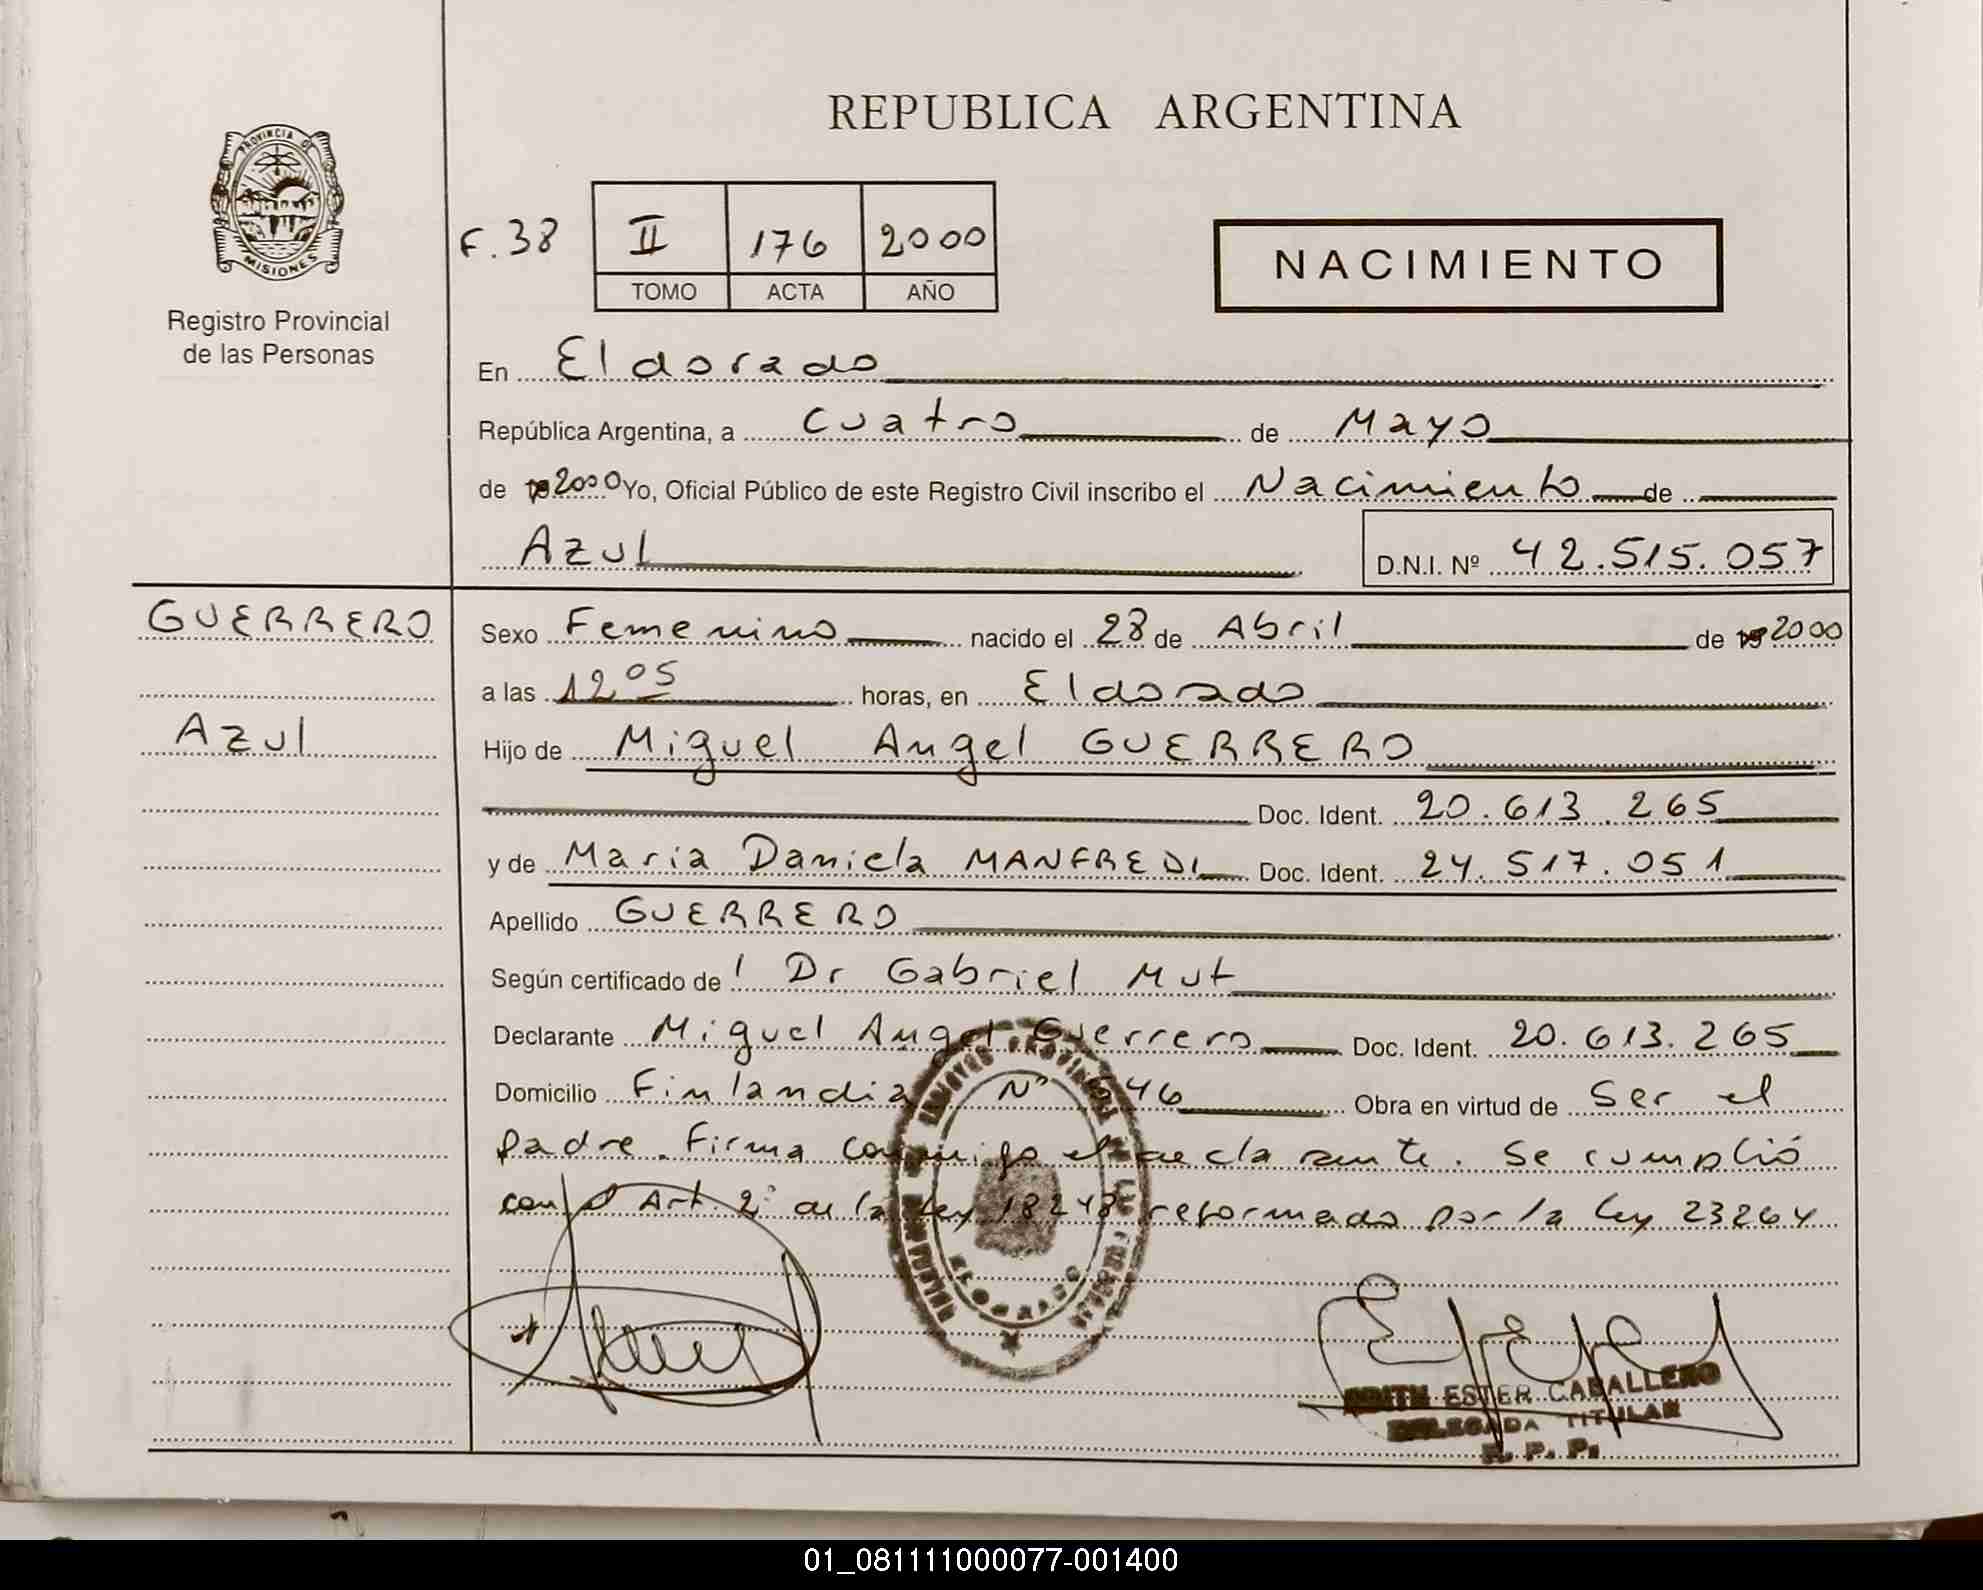 REPUBLICA ARGENTINA
PROVINCIA DE
MISIONES
Registro Provincial
de las Personas
F. 38 II 176 2000
TOMO ACTA AÑO
NACIMIENTO
En Eldorado
República Argentina, a Cuatro de Mayo
de 2000 Yo, Oficial Público de este Registro Civil inscribo el Nacimiento de
Azul D.N.I. Nº 42.515.057
GUERRERO
Azul
Sexo Femenino nacido el 28 de Abril de 2000
a las 12 05 horas, en Eldorado
Hijo de Miguel Angel GUERRERO
Doc. Ident. 20.613.265
y de Maria Daniela MANFREDI Doc. Ident. 24.517.051
Apellido GUERRERO
Según certificado de Dr Gabriel Mut
Declarante Miguel Angel Guerrero Doc. Ident. 20.613.265
Domicilio Finlandia Nº 646 Obra en virtud de Ser el
padre. Firma conmigo el declarante. Se cumplió
con el Art. 2º de la Ley 18248 reformado por la Ley 23264
ELDORADO
EDITH ESTER CABALLERO
DELEGADA TITULAR
R. P. P.
01_081111000077-001400